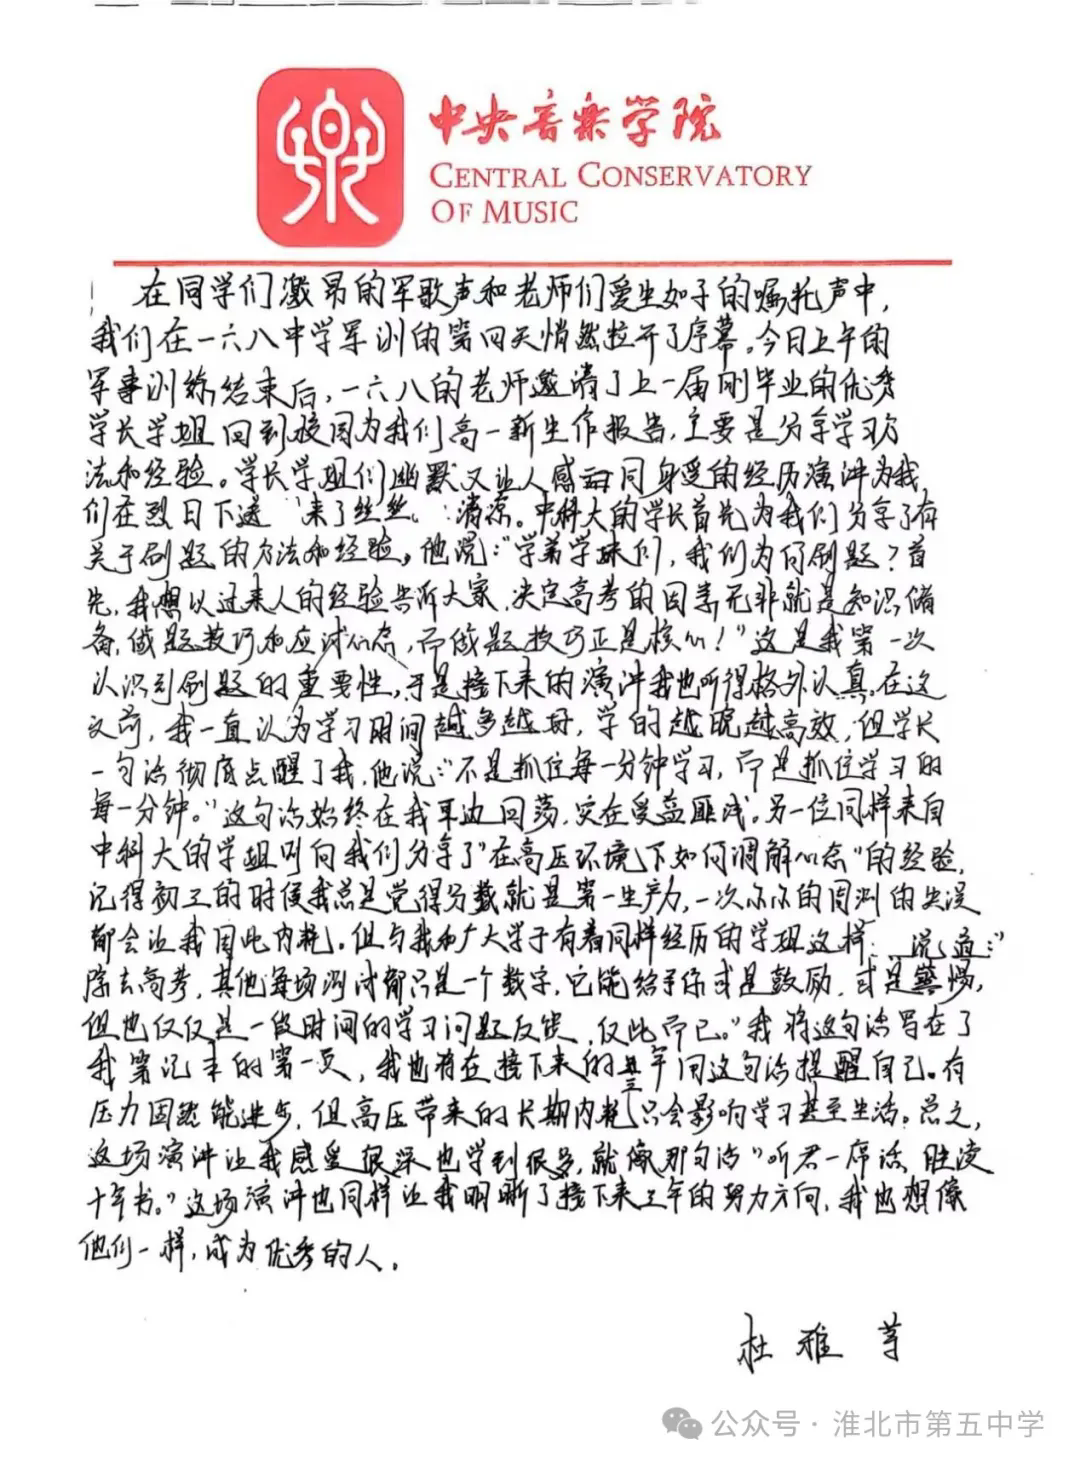 中央音乐学院
CENTRAL CONSERVATORY
OF MUSIC
在同学们激昂的军歌声和老师们爱生如子的嘱托声中,
我们在一六八中学军训的第四天悄然拉开了序幕。今日上午的
军事训练结束后,一六八的老师邀请了上一届刚毕业的优秀
学长学姐回到校园为我们高一新生作报告,主要是分享学习方
法和经验。学长学姐们幽默又让人感同身受的经历演讲为我
们在烈日下送来了丝丝清凉。中科大的学长首先为我们分享了有
关于刷题的方法和经验。他说:“学弟学妹们,我们为何刷题?首
先,我想以过来人的经验告诉大家,决定高考的因素无非就是知识储
备,做题技巧和应试心态,而做题技巧正是核心!”这是我第一次
认识到刷题的重要性,于是接下来的演讲我也听得格外认真。在这
之前,我一直认为学习时间越多越好,学的越晚越高效,但学长
一句话彻底点醒了我,他说:“不是抓住每一分钟学习,而是抓住学习的
每一分钟。”这句话始终在我耳边回荡,实在受益匪浅。另一位同样来自
中科大的学姐则向我们分享了“在高压环境下如何调解心态”的经验,
记得初三的时候我总是觉得分数就是第一生产力,一次小小的周测的失误
都会让我因此内耗。但与我和广大学子有着同样经历的学姐这样说道:“
除去高考,其他每场测试都只是一个数字,它能给予你或是鼓励,或是警惕,
但也仅仅是一段时间的学习问题反馈,仅此而已。”我将这句话写在了
我笔记本的第一页,我也将在接下来的三年间这句话提醒自己。有
压力固然能进步,但高压带来的长期内耗只会影响学习甚至生活。总之,
这场演讲让我感受很深也学到很多,就像那句话“听君一席话,胜读
十年书。”这场演讲也同样让我明晰了接下来三年的努力方向,我也想像
他们一样,成为优秀的人。
杜雅芋
公众号·淮北市第五中学